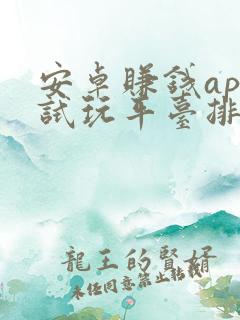 安卓賺錢ap
試玩平臺排
龍王的賢婿
未任同意禁止轉載